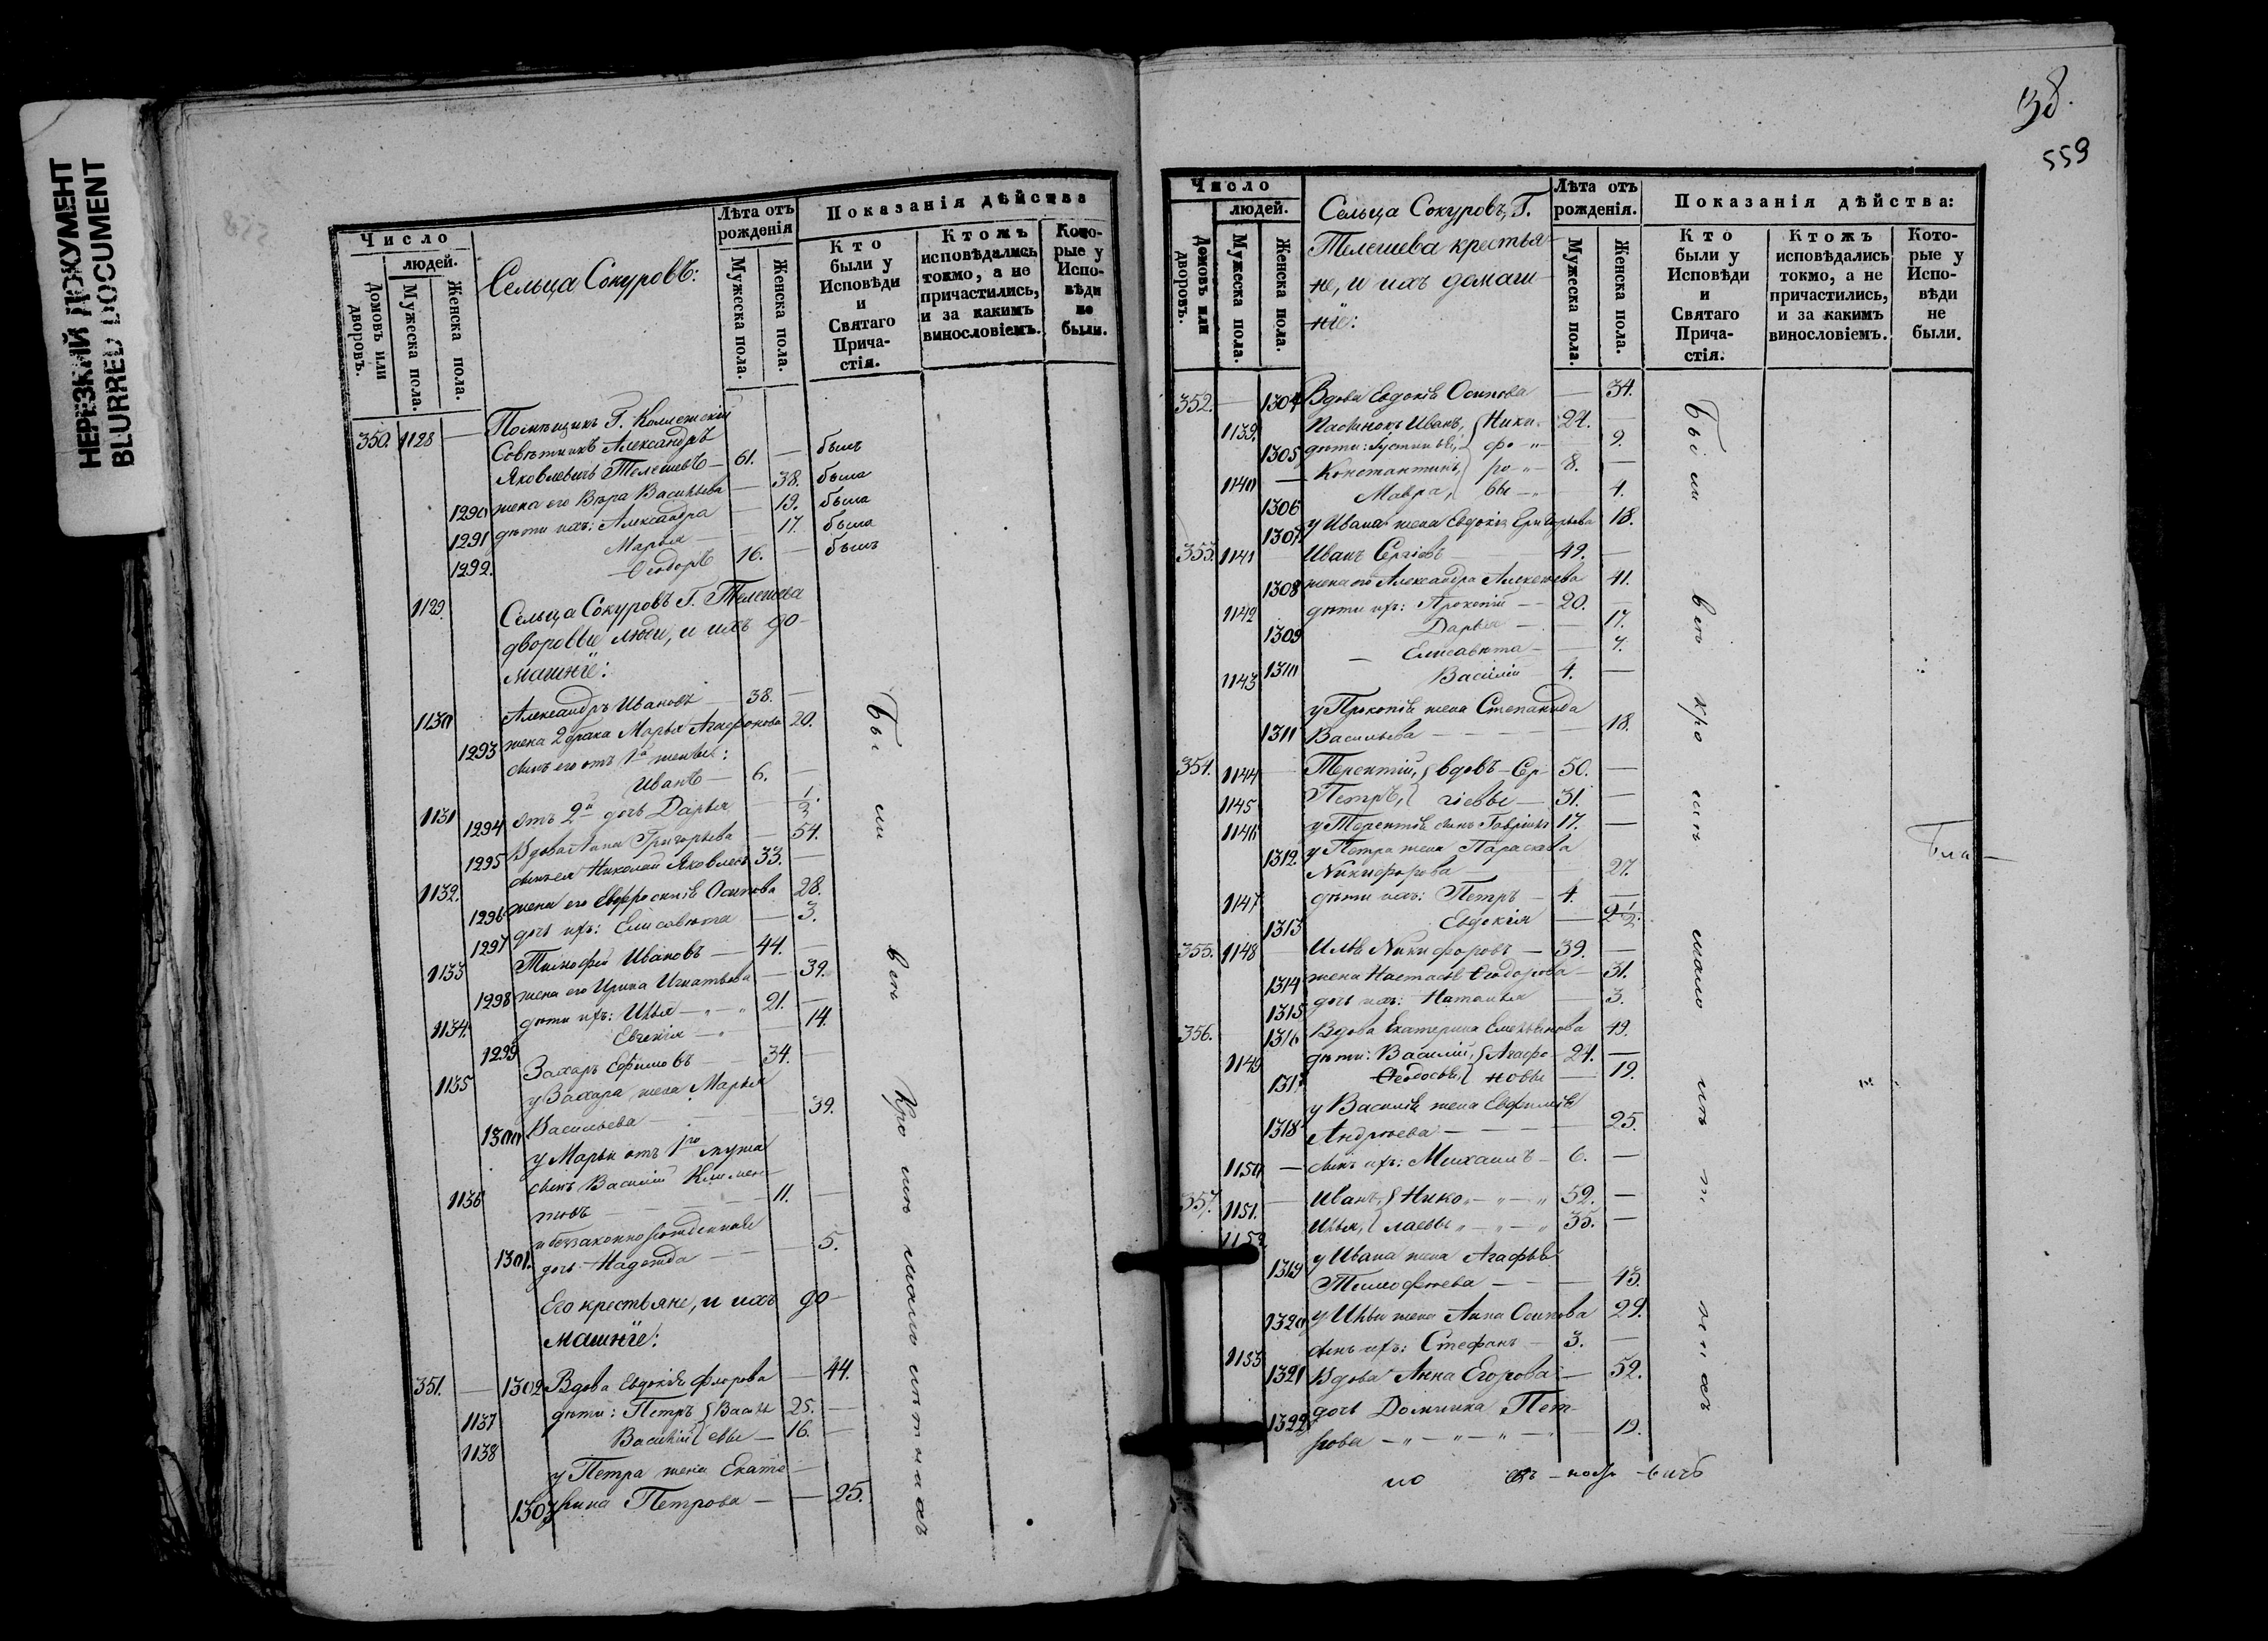 НЕРЕЗКИЙ ДОКУМЕНТ
BLURRED DOCUMENT
Число
людей.
Домовъ или дворовъ.
Мужеска пола.
Женска пола.
Сельца Сокуровъ:
Лѣта отъ рожденія
Мужеска пола.
Женска пола.
Показанія дѣйства
Кто были у Исповѣди и Святаго Причастія.
Ктожъ исповѣдались токмо, а не причастились, и за какимъ винословіемъ.
Которые у Исповѣди не были.
350. 1128 — Помѣщикъ Г. Коллежскій
Совѣтникъ Александръ
Яковлевичъ Телешевъ — 61. — былъ
1290 жена его Вѣра Васильева — 38. была
1291 дѣти ихъ: Александра — 19. была
1292. Марья — 17. была
1129. Ѳеодоръ 16. — былъ
Сельца Сокуровъ Г. Телешева
дворовые люди, и ихъ до-
машніе:
1130 Александръ Ивановъ — 38. —
1293 жена 2 брака Марья Агафонова 20.
сынъ его отъ 1й жены:
1131 Иванъ — 6. —
1294 отъ 2й дочь Дарья — 1/2.
1295 Вдова Анна Григорьева — 54.
1132. сынъ ея Николай Яковлевъ 33. —
1296 жена его Евфросинія Осипова 28.
1297 дочь ихъ: Елисавета — 3.
1133 Тимофей Ивановъ — 44. —
1298 жена его Ирина Игнатьева — 39.
1134. дѣти ихъ: Илья — 21. —
1299 Евгенія — 14.
1135 Захаръ Ефимовъ — 34. —
у Захара жена Марья
1300 Васильева — 39.
у Марьи отъ 1го мужа
сынъ Василій Климен-
1136 товъ — 11. —
и беззаконно рожденная
1301. дочь Надежда — 5.
Его крестьяне, и ихъ до-
машніе:
351. — 1302 Вдова Евдокія Флорова — 44.
1137 дѣти: Петръ { Василь 25. —
1138 Василій { евы — 16. —
у Петра жена Екате-
1303 рина Петрова — 25.
Были вси кро мѣ мало лѣтныхъ
38.
559
Число
людей.
Домовъ или дворовъ.
Мужеска пола.
Женска пола.
Сельца Сокуровъ, Г.
Телешева крестья-
не, и ихъ домаш-
ніе:
Лѣта отъ рожденія.
Мужеска пола.
Женска пола.
Показанія дѣйства:
Кто были у Исповѣди и Святаго Причастія.
Ктожъ исповѣдались токмо, а не причастились, и за какимъ винословіемъ.
Которые у Исповѣди не были.
352. — 1304 Вдова Евдокія Осипова — 34.
1139. Пасынокъ Иванъ, { Ники- 24. —
1305 дѣти: { фо — 9.
1140 — Константинъ, { ро — 8. —
1306 Мавра, { вы — 4.
1307. у Ивана жена Евдокія Григорьева 18.
353. 1141 Иванъ Сергіевъ 49. —
1308 жена его Александра Алексѣева 41.
1142 дѣти ихъ: Прокопій — 20. —
1309 Дарья — 17.
1310 Елисавета — 7.
1143 Василій 4. —
у Прокопія жена Степанида
1311 Васильева — 18.
354. 1144 — Терентій, { вдовъ — Сер- 50. —
1145 Петръ, { гіевы — 31. —
1146 у Терентія сынъ Гавріилъ 17. —
1312. у Петра жена Параскева
Никифорова 27.
1147 дѣти ихъ: Петръ — 4. —
1313 Евдокія — 2 1/2.
355. 1148 Илья Никифоровъ — 39. —
1314 жена Настасья Ѳеодорова — 31.
1315 дочь ихъ: Наталья 3.
356. 1316 Вдова Екатерина Емельянова 49.
1149 дѣти: Василій, { Агафо- 24. —
1317 Ѳеодосья, { новы — 19.
у Василія жена Евфимія
1318 Андреева — 25.
1150 — сынъ ихъ: Михаилъ — 6. —
357. 1151. — Иванъ, { Нико- 52. —
1152 Илья, { лаевы 35. —
у Ивана жена Агафья
1319 Тимофѣева — 43.
1320 у Ильи жена Анна Осипова 29.
1153 сынъ ихъ: Стефанъ — 3. —
1321 Вдова Анна Егорова — 52.
дочь Домника Пет-
1322 рова — 19.
Были вси кро мѣ мало лѣтныхъ